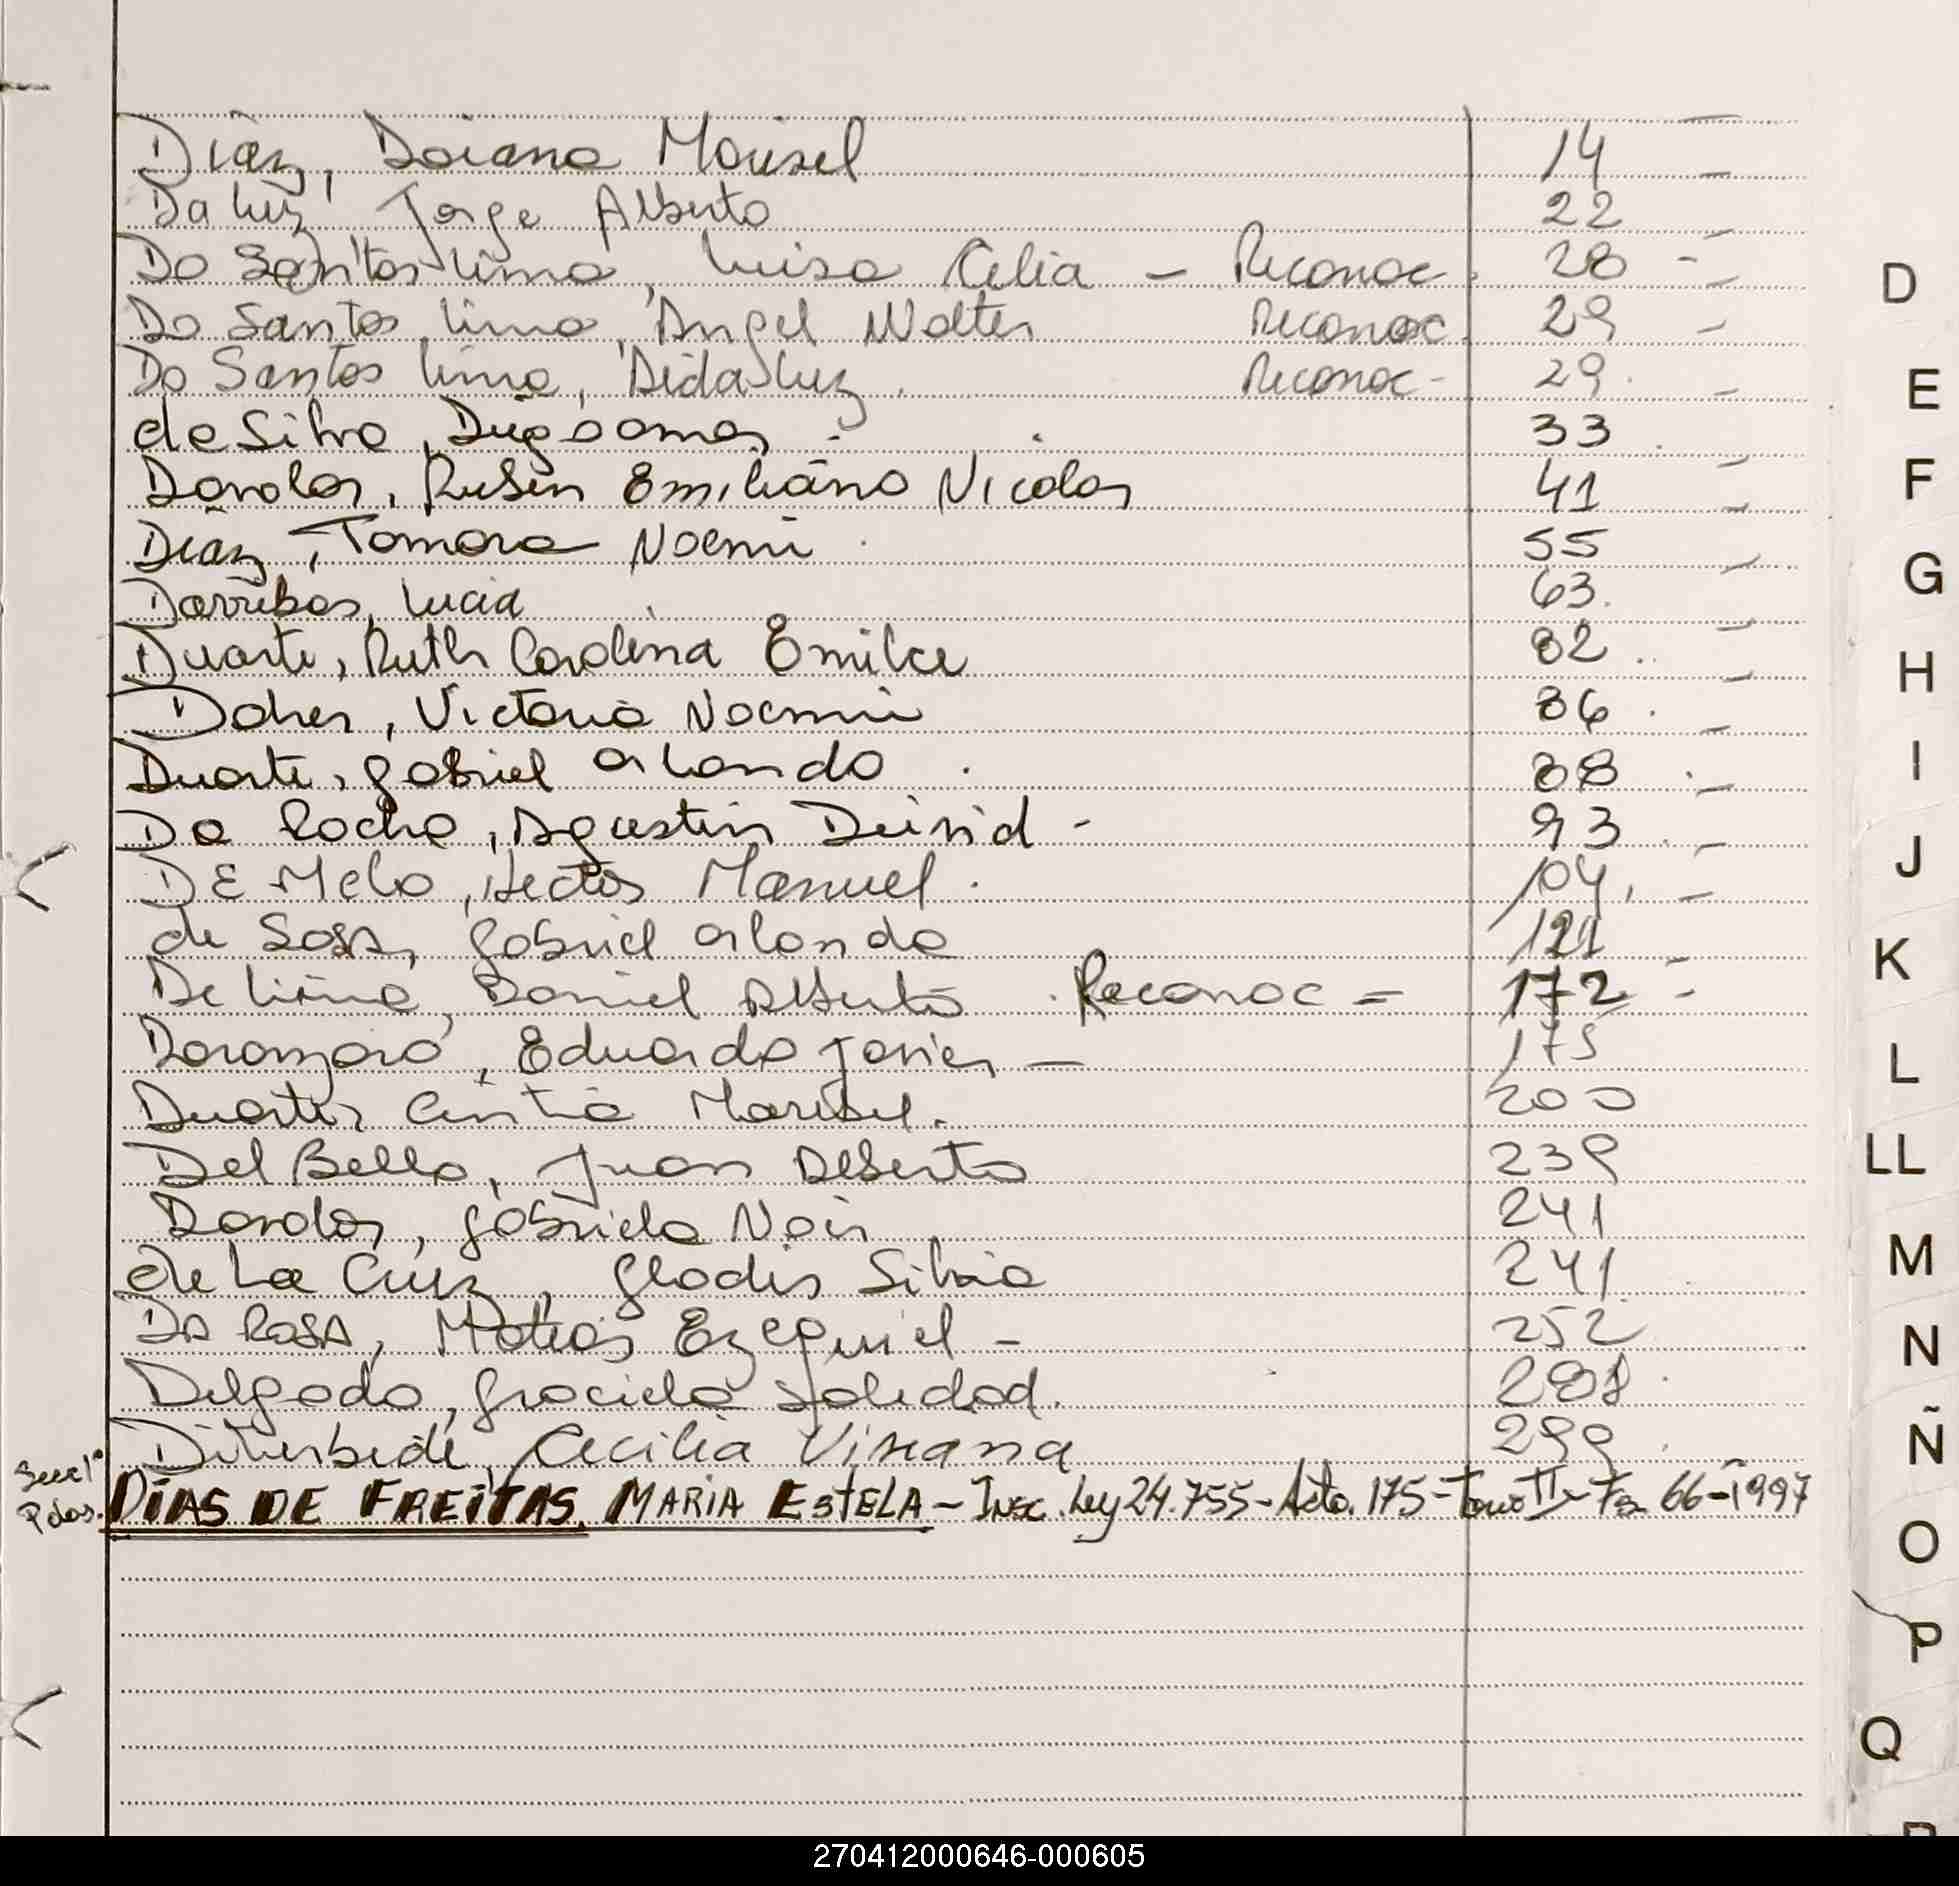 Díaz, Daiana Marisel 14 -
Da Luz Jorge Alberto 22
Do Santos Lima, Luisa Celia - Reconoc. 28 -
Do Santos Lima, Angel Walter Reconoc. 29
Do Santos Lima, Aida Luz. Reconoc- 29.
da Silva, 33
Davalos, Ruben Emiliano Nicolas 41
Diaz, Tamara Noemi 55
Darribas, Lucia 63.
Duarte, Ruth Carolina Emilce 82
Daher, Victoria Noemi 86
Duarte, Gabriel Orlando 88
Da Rocha, Agustin Deivid - 93
DE Melo, Hector Manuel. 104.
de Sosa, Gabriel Orlando 121
De Lima, Daniel Alberto Reconoc = 172 -
Doromzoro, Eduardo Javier - 175
Duarte, Cintia Marisel. 200
Del Bello, Juan Alberto 239
Davalos, Gabriela Noir 241
de La Cruz, Gladis Silvia 241
Da Rosa, Matias Ezequiel - 252
Delgado, Graciela Soledad. 298
Diturbide, Cecilia Viviana 299
Secc 1° Pdas.
DÍAS DE FREITAS, MARIA ESTELA - Insc. Ley 24.755 - Acta. 175 - Tomo II - Fº 66 - 1997
D
E
F
G
H
I
J
K
L
LL
M
N
Ñ
O
P
Q
270412000646-000605